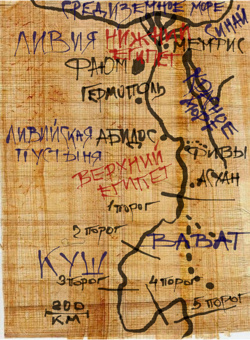 СРЕДИЗЕМНОЕ МОРЕ
СИНАЙ
ЛИВИЯ
НИЖНИЙ
ЕГИПЕТ
МЕМФИС
ФАЮМ
ГЕРМОПОЛЬ
МОРЕ
ЛИВИЙСКАЯ
ПУСТЫНЯ
АБИДОС
ФИВЫ
ВЕРХНИЙ
ЕГИПЕТ
АСУАН
1 ПОРОГ
2 ПОРОГ
ВАВАТ
КУШ
3 ПОРОГ
4 ПОРОГ
5 ПОРОГ
200
КМ